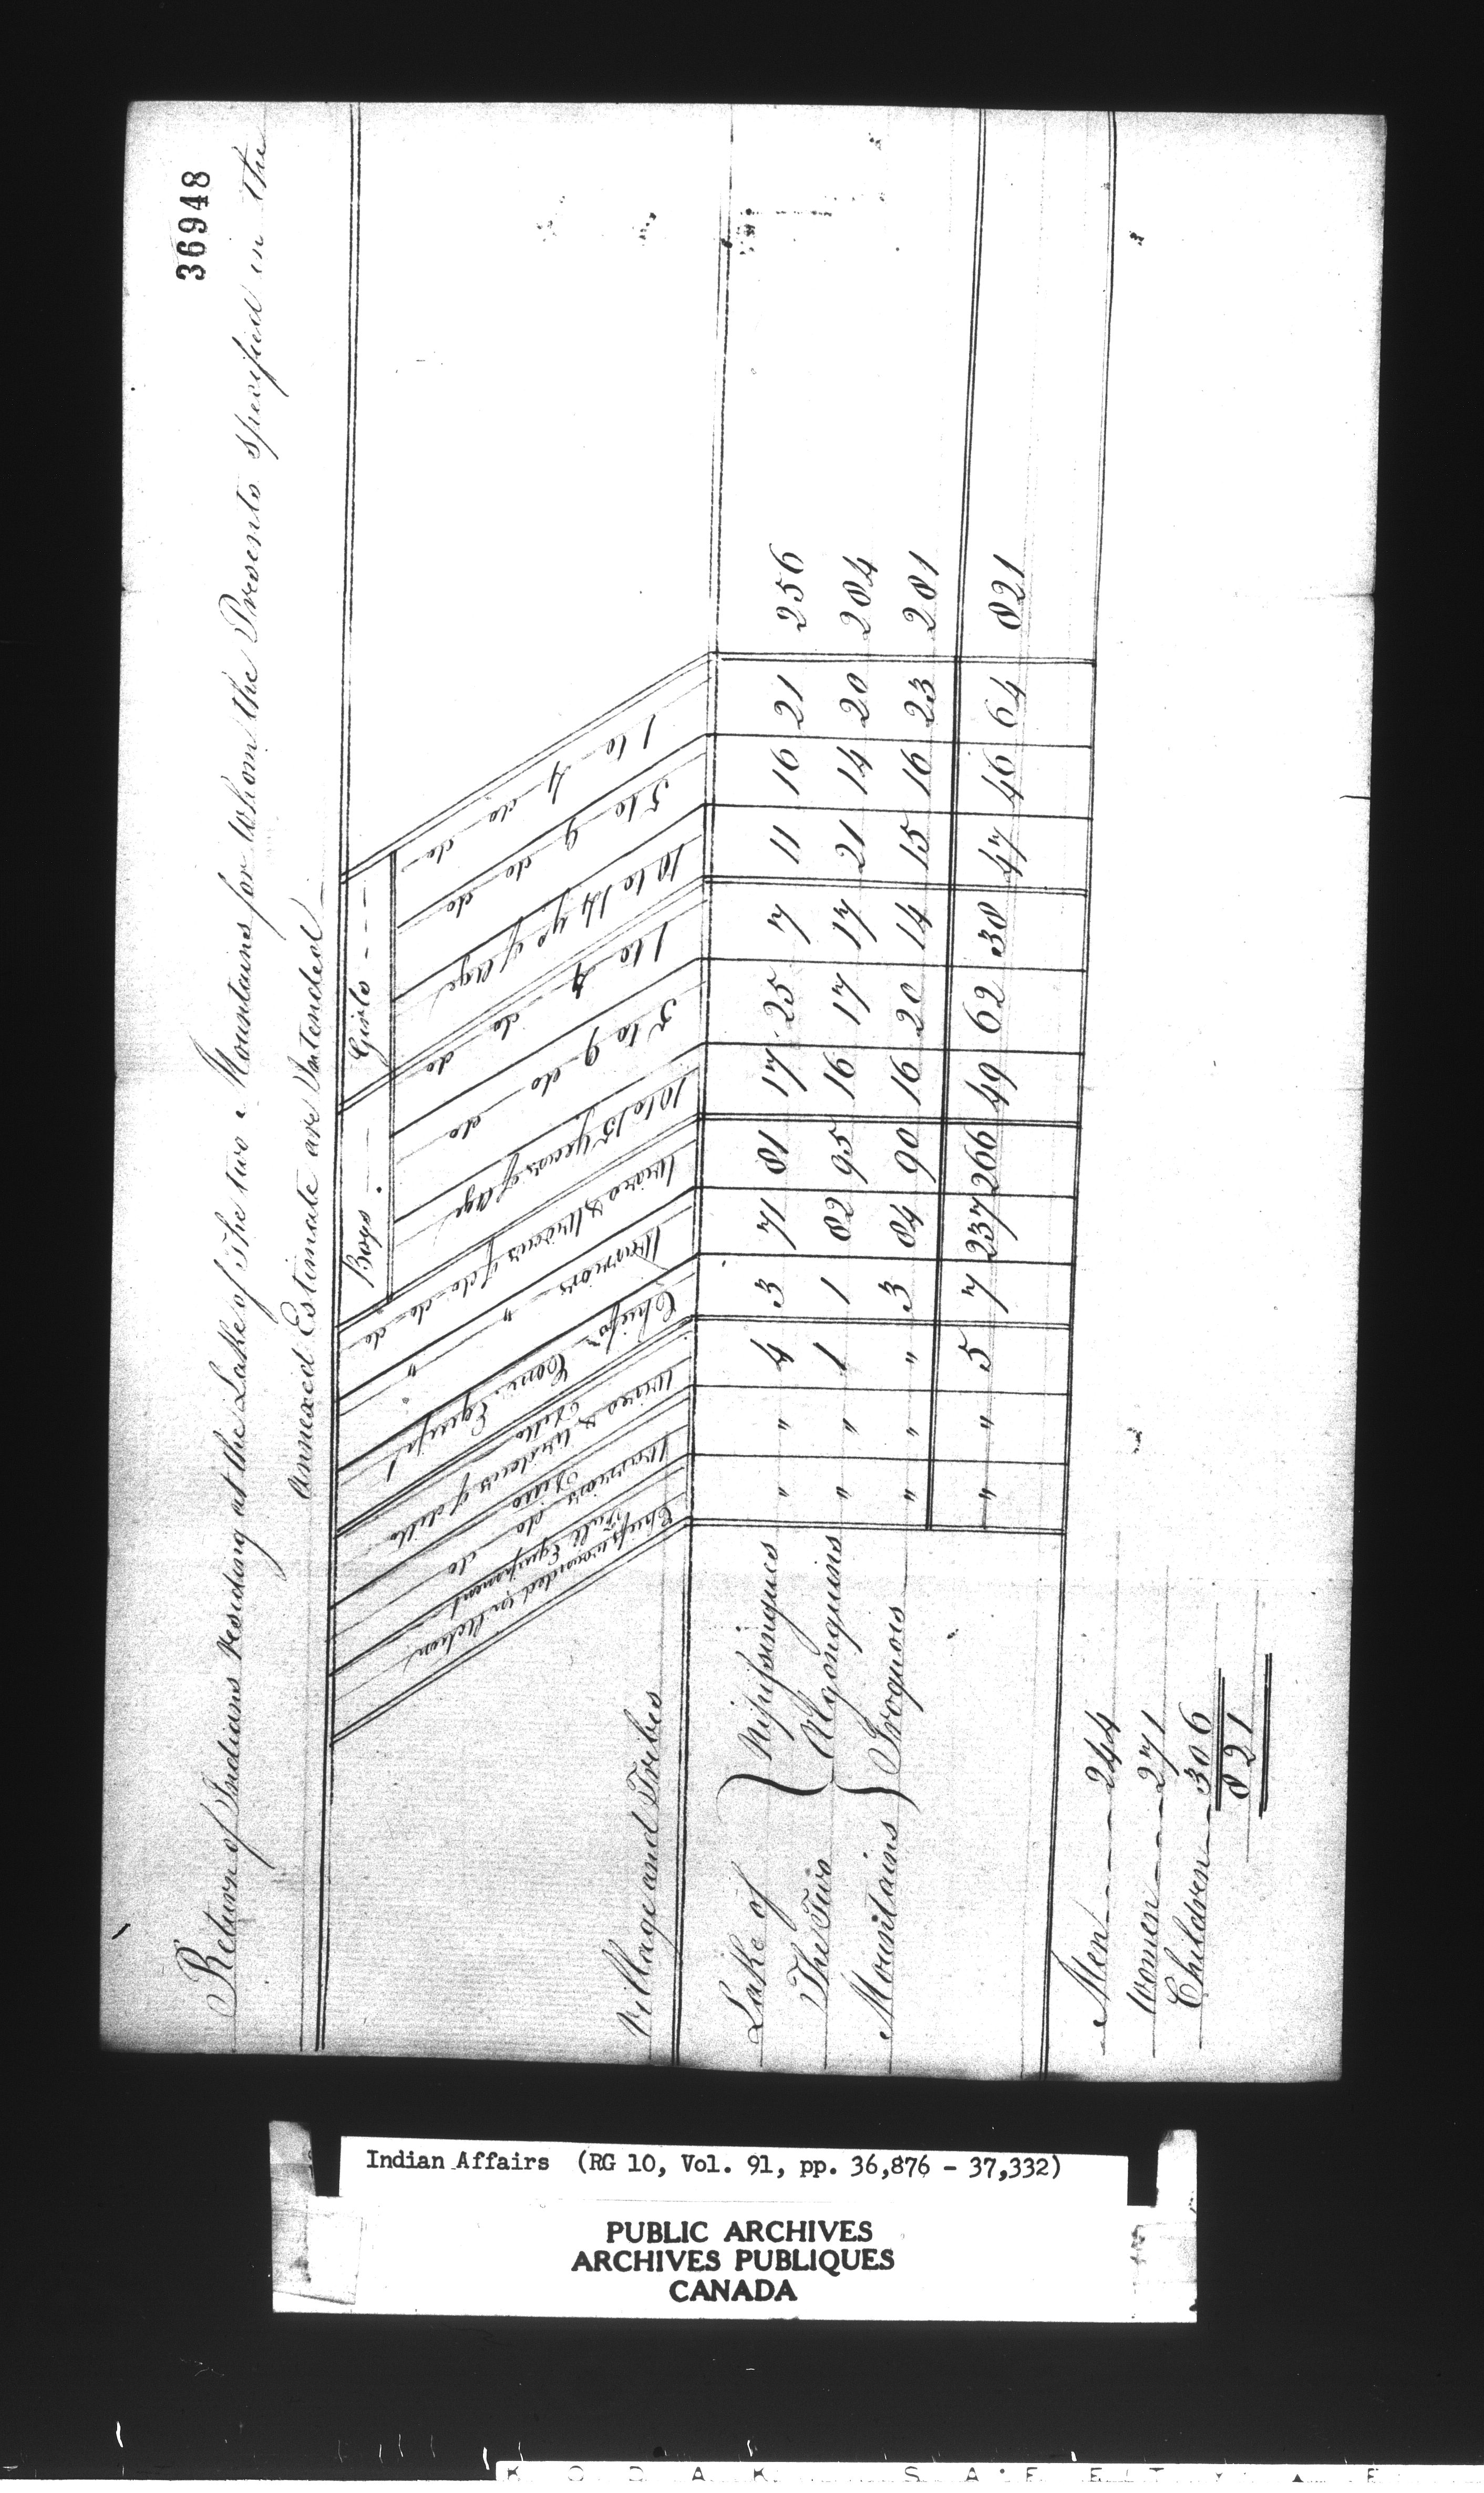 36948
Return of Indians residing at the Lake of The two Mountains for whom the Presents specified in the
annexed Estimate are Intended
Village and Tribes
Chiefs wounded in Action
Full Equipment
Warriors do do
Ditto
Wives & Widows of ditto
Ditto
Chiefs Com. Equip.t
Warriors " "
Wives & Widows of do do do
Boys
10 to 15 years of Age
5 to 9 do do
1 to 4 do do
Girls
10 to 14 ys of Age
5 to 9 do do
1 to 4 do do
Lake of } Nipissingues " " 4 3 71 81 17 25 7 11 16 21 256
The Two } Algonquins " " 1 1 82 95 16 17 17 21 14 20 284
Mountains } Iroquois " " " 3 84 90 16 20 14 15 16 23 281
" " 5 7 237 266 49 62 38 47 46 64 821
Men 244
Women 271
Children 306
821
Indian Affairs (RG 10, Vol. 91, pp. 36,876 - 37,332)
PUBLIC ARCHIVES
ARCHIVES PUBLIQUES
CANADA
KODAK SAFETY